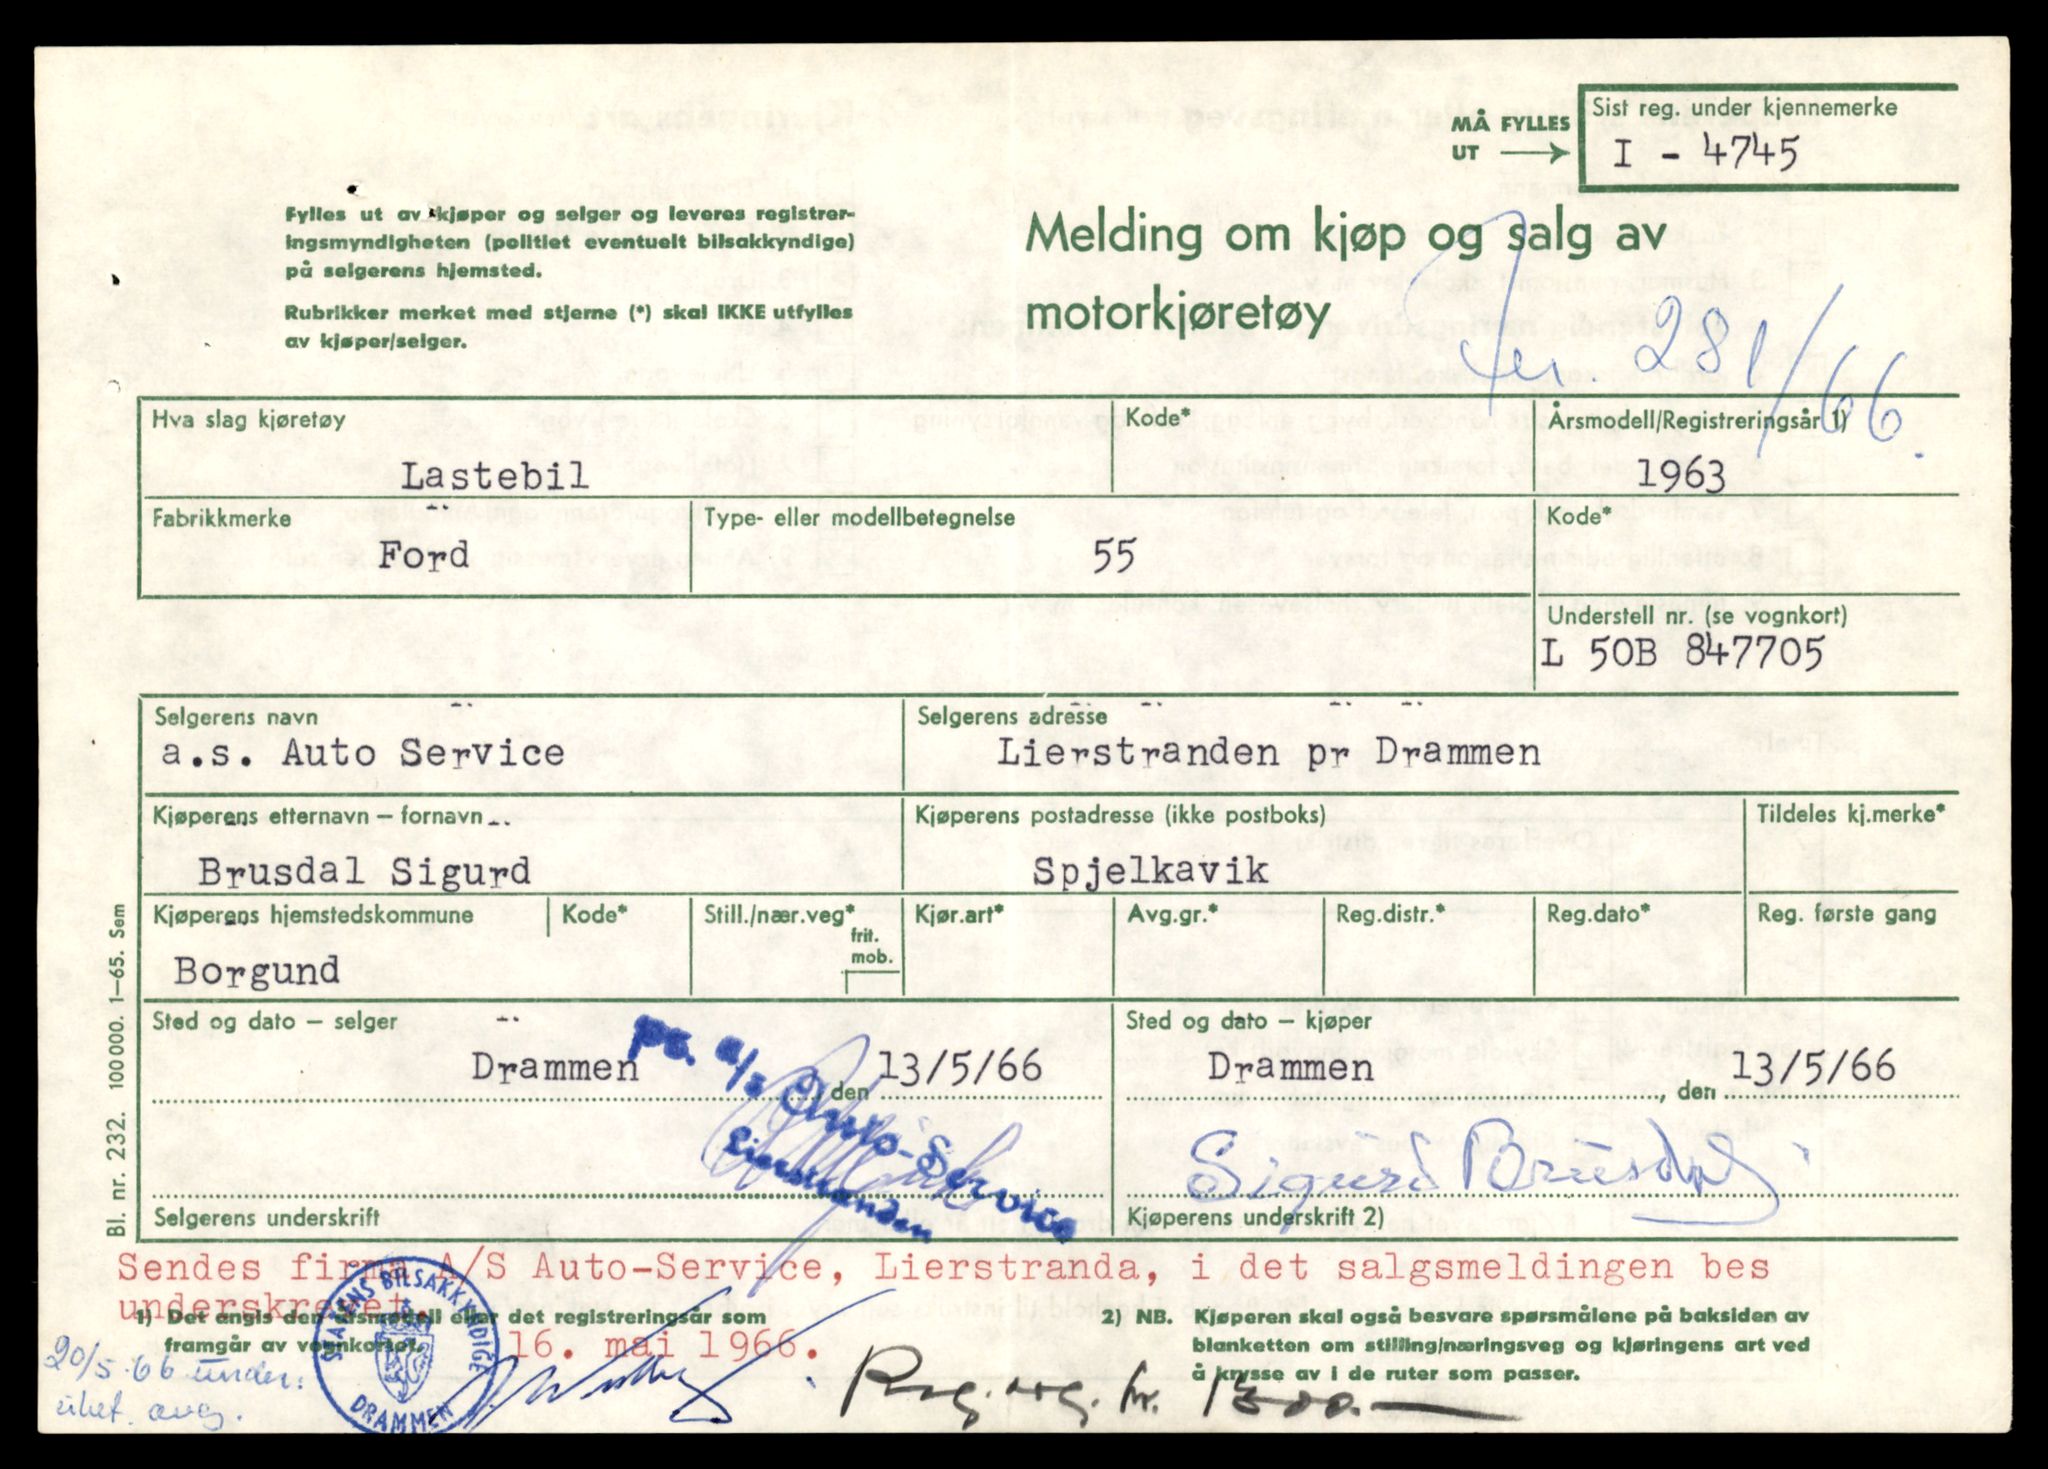 MÅ FYLLES
UT
Sist reg. under kjennemerke
I - 4745
Fylles ut av kjøper og selger og leveres registrer-
ingsmyndigheten (politiet eventuelt bilsakkyndige)
på selgerens hjemsted.
Rubrikker merket med stjerne (*) skal IKKE utfylles
av kjøper/selger.
Melding om kjøp og salg av
motorkjøretøy
281/66.
Hva slag kjøretøy
Lastebil
Kode*
Årsmodell/Registreringsår 1)
1963
Fabrikkmerke
Ford
Type- eller modellbetegnelse
55
Kode*
Understell nr. (se vognkort)
L 50B 847705
Selgerens navn
a.s. Auto Service
Selgerens adresse
Lierstranden pr Drammen
Kjøperens etternavn – fornavn
Brusdal Sigurd
Kjøperens postadresse (ikke postboks)
Spjelkavik
Tildeles kj.merke*
Kjøperens hjemstedskommune
Borgund
Kode*
Still./nær.veg*
frit.
mob.
Kjør.art*
Avg.gr.*
Reg.distr.*
Reg.dato*
Reg. første gang
Sted og dato – selger
Drammen, den 13/5/66
Sted og dato – kjøper
Drammen, den 13/5/66
pr. a/s Auto-Service
Lierstranden
Selgerens underskrift
Sigurd Brusdal
Kjøperens underskrift 2)
Bl. nr. 232. 100 000. 1–65. Sem
Sendes firma A/S Auto-Service, Lierstranda, i det salgsmeldingen bes
underskrevet.
1) Det angis den årsmodell eller det registreringsår som
framgår av vognkortet.
16. mai 1966.
2) NB. Kjøperen skal også besvare spørsmålene på baksiden av
blanketten om stilling/næringsveg og kjøringens art ved
å krysse av i de ruter som passer.
STATENS BILSAKKYNDIGE
DRAMMEN
20/5-66 under:
Reg. avg. kr.